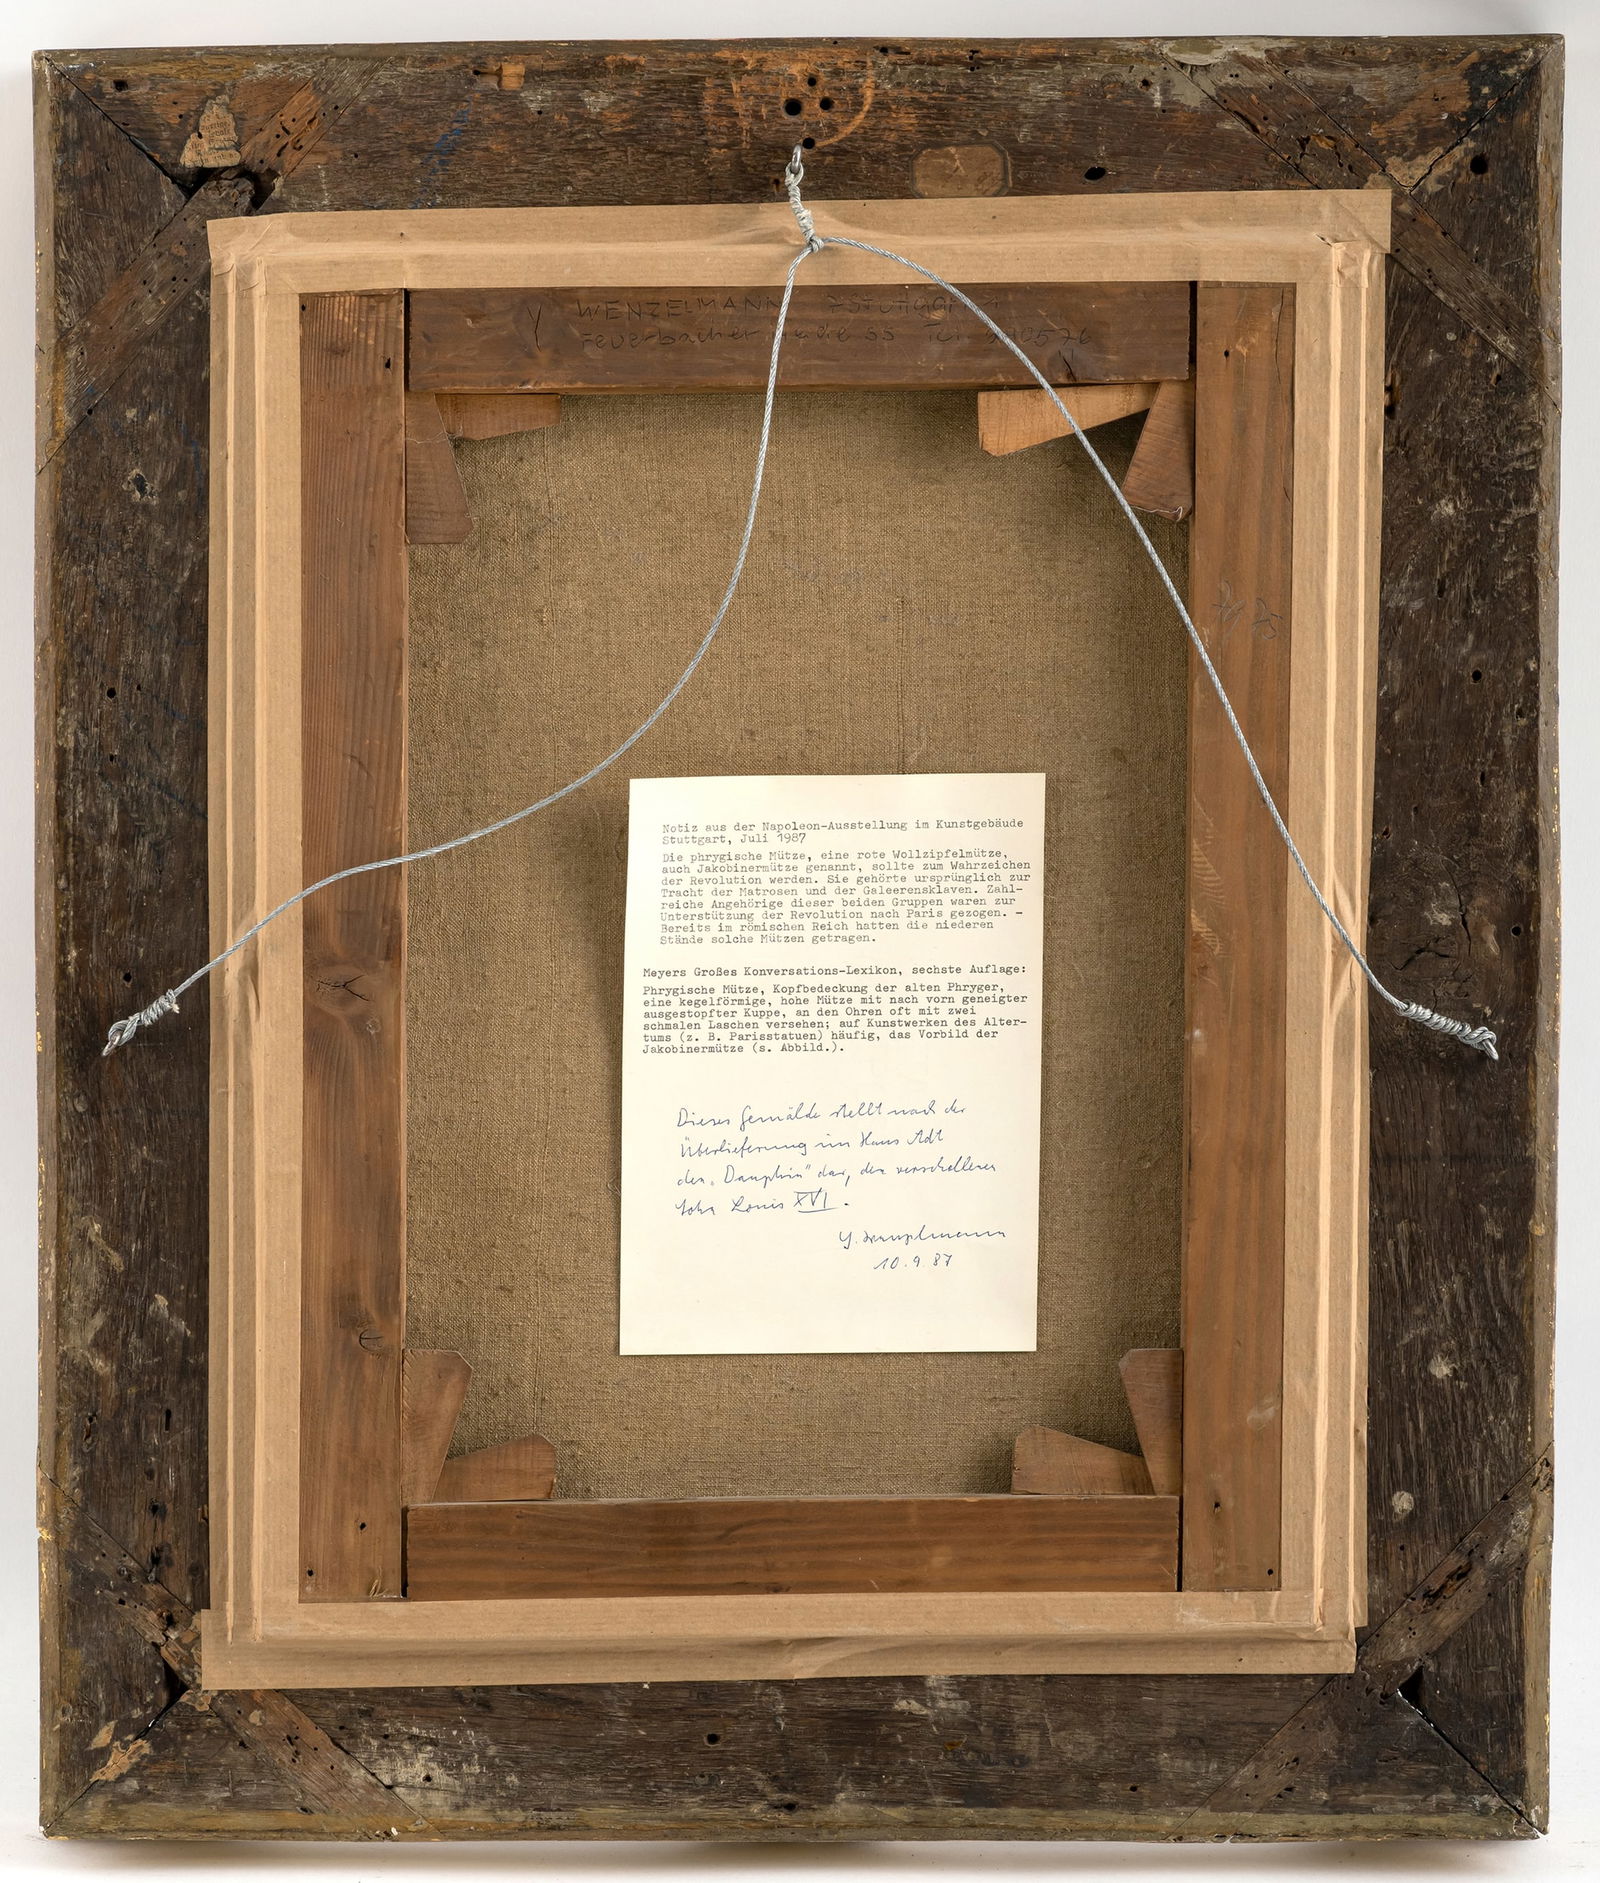 WENZELMANN 7 Stuttgart 1
Feuerbacher Heide 55 Tel.
79 75
Notiz aus der Napoleon-Ausstellung im Kunstgebäude
Stuttgart, Juli 1987
Die phrygische Mütze, eine rote Wollzipfelmütze,
auch Jakobinermütze genannt, sollte zum Wahrzeichen
der Revolution werden. Sie gehörte ursprünglich zur
Tracht der Matrosen und der Galeerensklaven. Zahl-
reiche Angehörige dieser beiden Gruppen waren zur
Unterstützung der Revolution nach Paris gezogen. -
Bereits im römischen Reich hatten die niederen
Stände solche Mützen getragen.
Meyers Großes Konversations-Lexikon, sechste Auflage:
Phrygische Mütze, Kopfbedeckung der alten Phryger,
eine kegelförmige, hohe Mütze mit nach vorn geneigter
ausgestopfter Kuppe, an den Ohren oft mit zwei
schmalen Laschen versehen; auf Kunstwerken des Alter-
tums (z. B. Parisstatuen) häufig, das Vorbild der
Jakobinermütze (s. Abbild.).
Dieses Gemälde stellt nach der
Überlieferung im Haus Adt
den „Dauphin" dar, den verschollenen
Sohn Louis XVI.
10.9.87